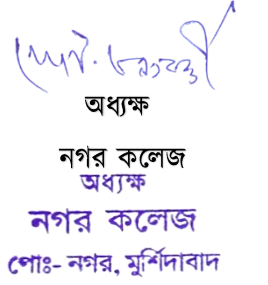 অধ্যক্ষ
নগর কলেজ
অধ্যক্ষ
নগর কলেজ
পোঃ- নগর, মুর্শিদাবাদ